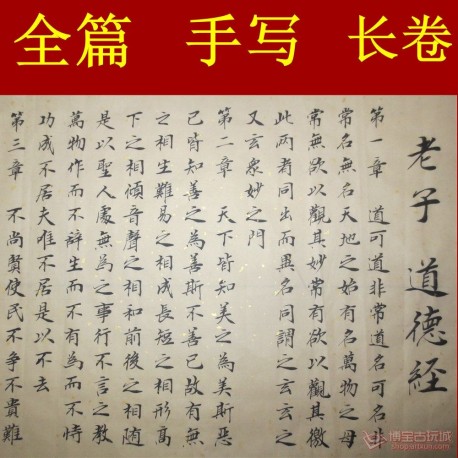 全篇 手写 长卷
老子 道德經
第一章 道可道非常道名可名非
常名無名天地之始有名萬物之母
常無欲以觀其妙常有欲以觀其徼
此兩者同出而異名同謂之玄玄之
又玄衆妙之門
第二章 天下皆知美之為美斯惡
已皆知善之為善斯不善已故有無
之相生難易之相成長短之相形髙
下之相傾音聲之相和前後之相随
是以聖人處無為之事行不言之教
萬物作而不辭生而不有為而不恃
功成不居夫唯不居是以不去
第三章 不尚賢使民不爭不貴難
博宝古玩城
shop.artxun.com